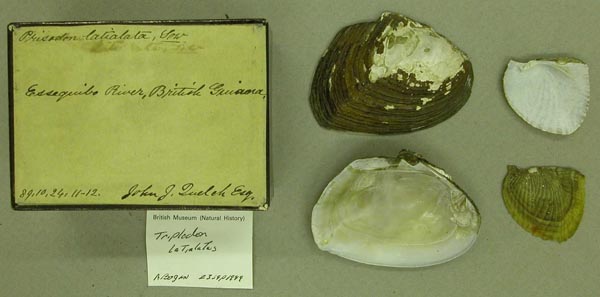 Prisodon latialata, Sow
Essequibo River, British Guiana,
89, 10, 24, 11-12. John J. Quelch Esq.
British Museum (Natural History)
Triplodon
latialatus
A. Bogan